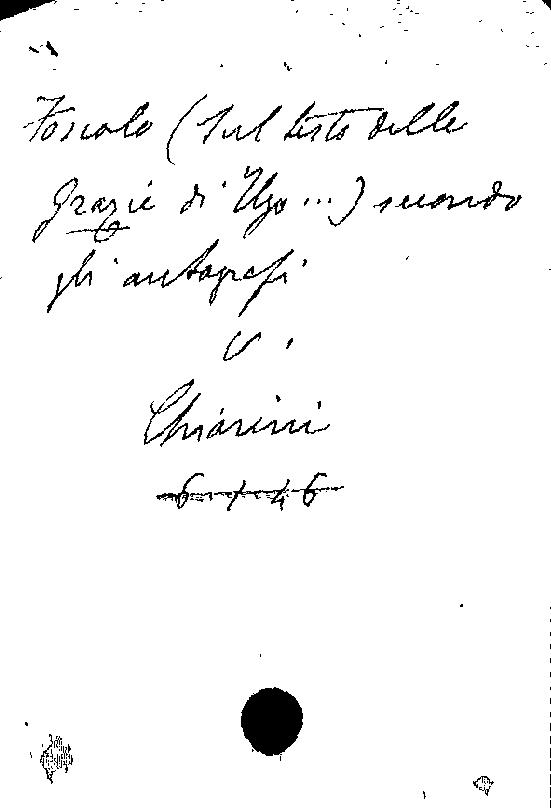 Foscolo (Sul testo delle
Grazie di Ugo ...) secondo
gli autografi
v.
Chiarini
6 1 4 6